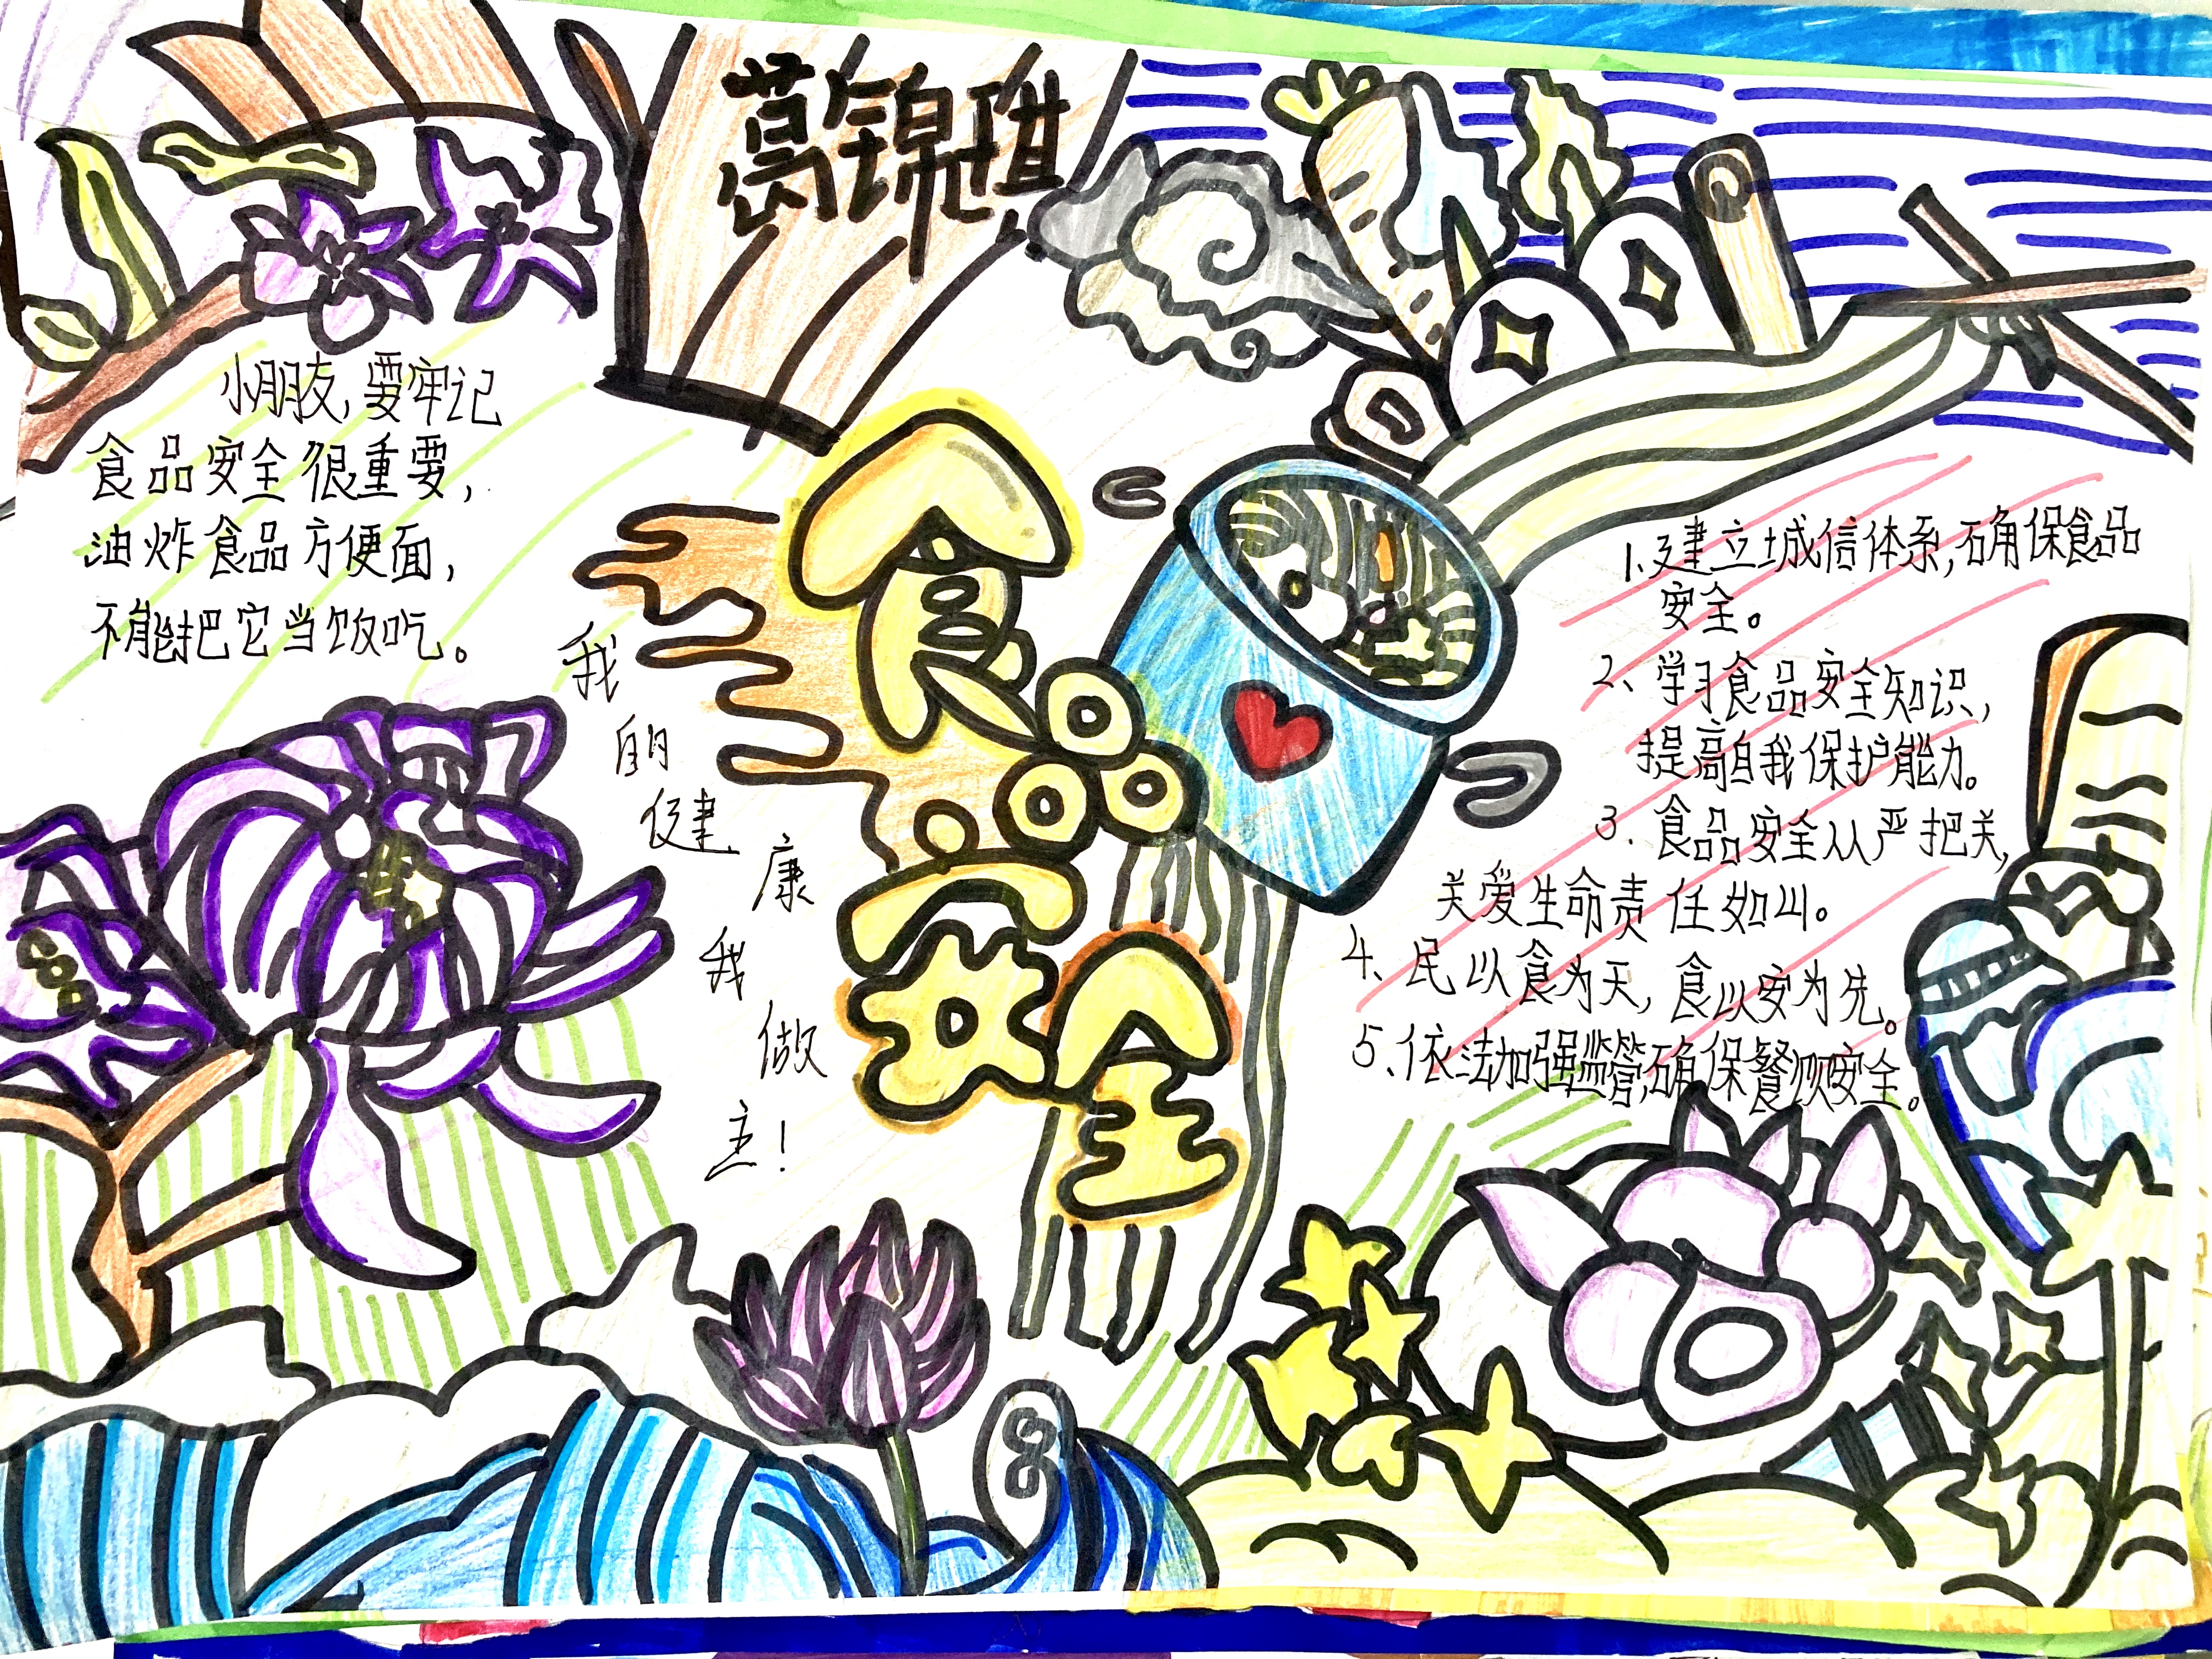 葛锦琪
小朋友，要牢记
食品安全很重要，
油炸食品方便面，
不能把它当饭吃。
我的健康我做主！
食品安全
1.建立城信体系，确保食品
安全。
2、学习食品安全知识，
提高自我保护能力。
3.食品安全从严把关，
关爱生命责任如山。
4、民以食为天，食以安为先。
5、依法加强监管，确保餐饮安全。